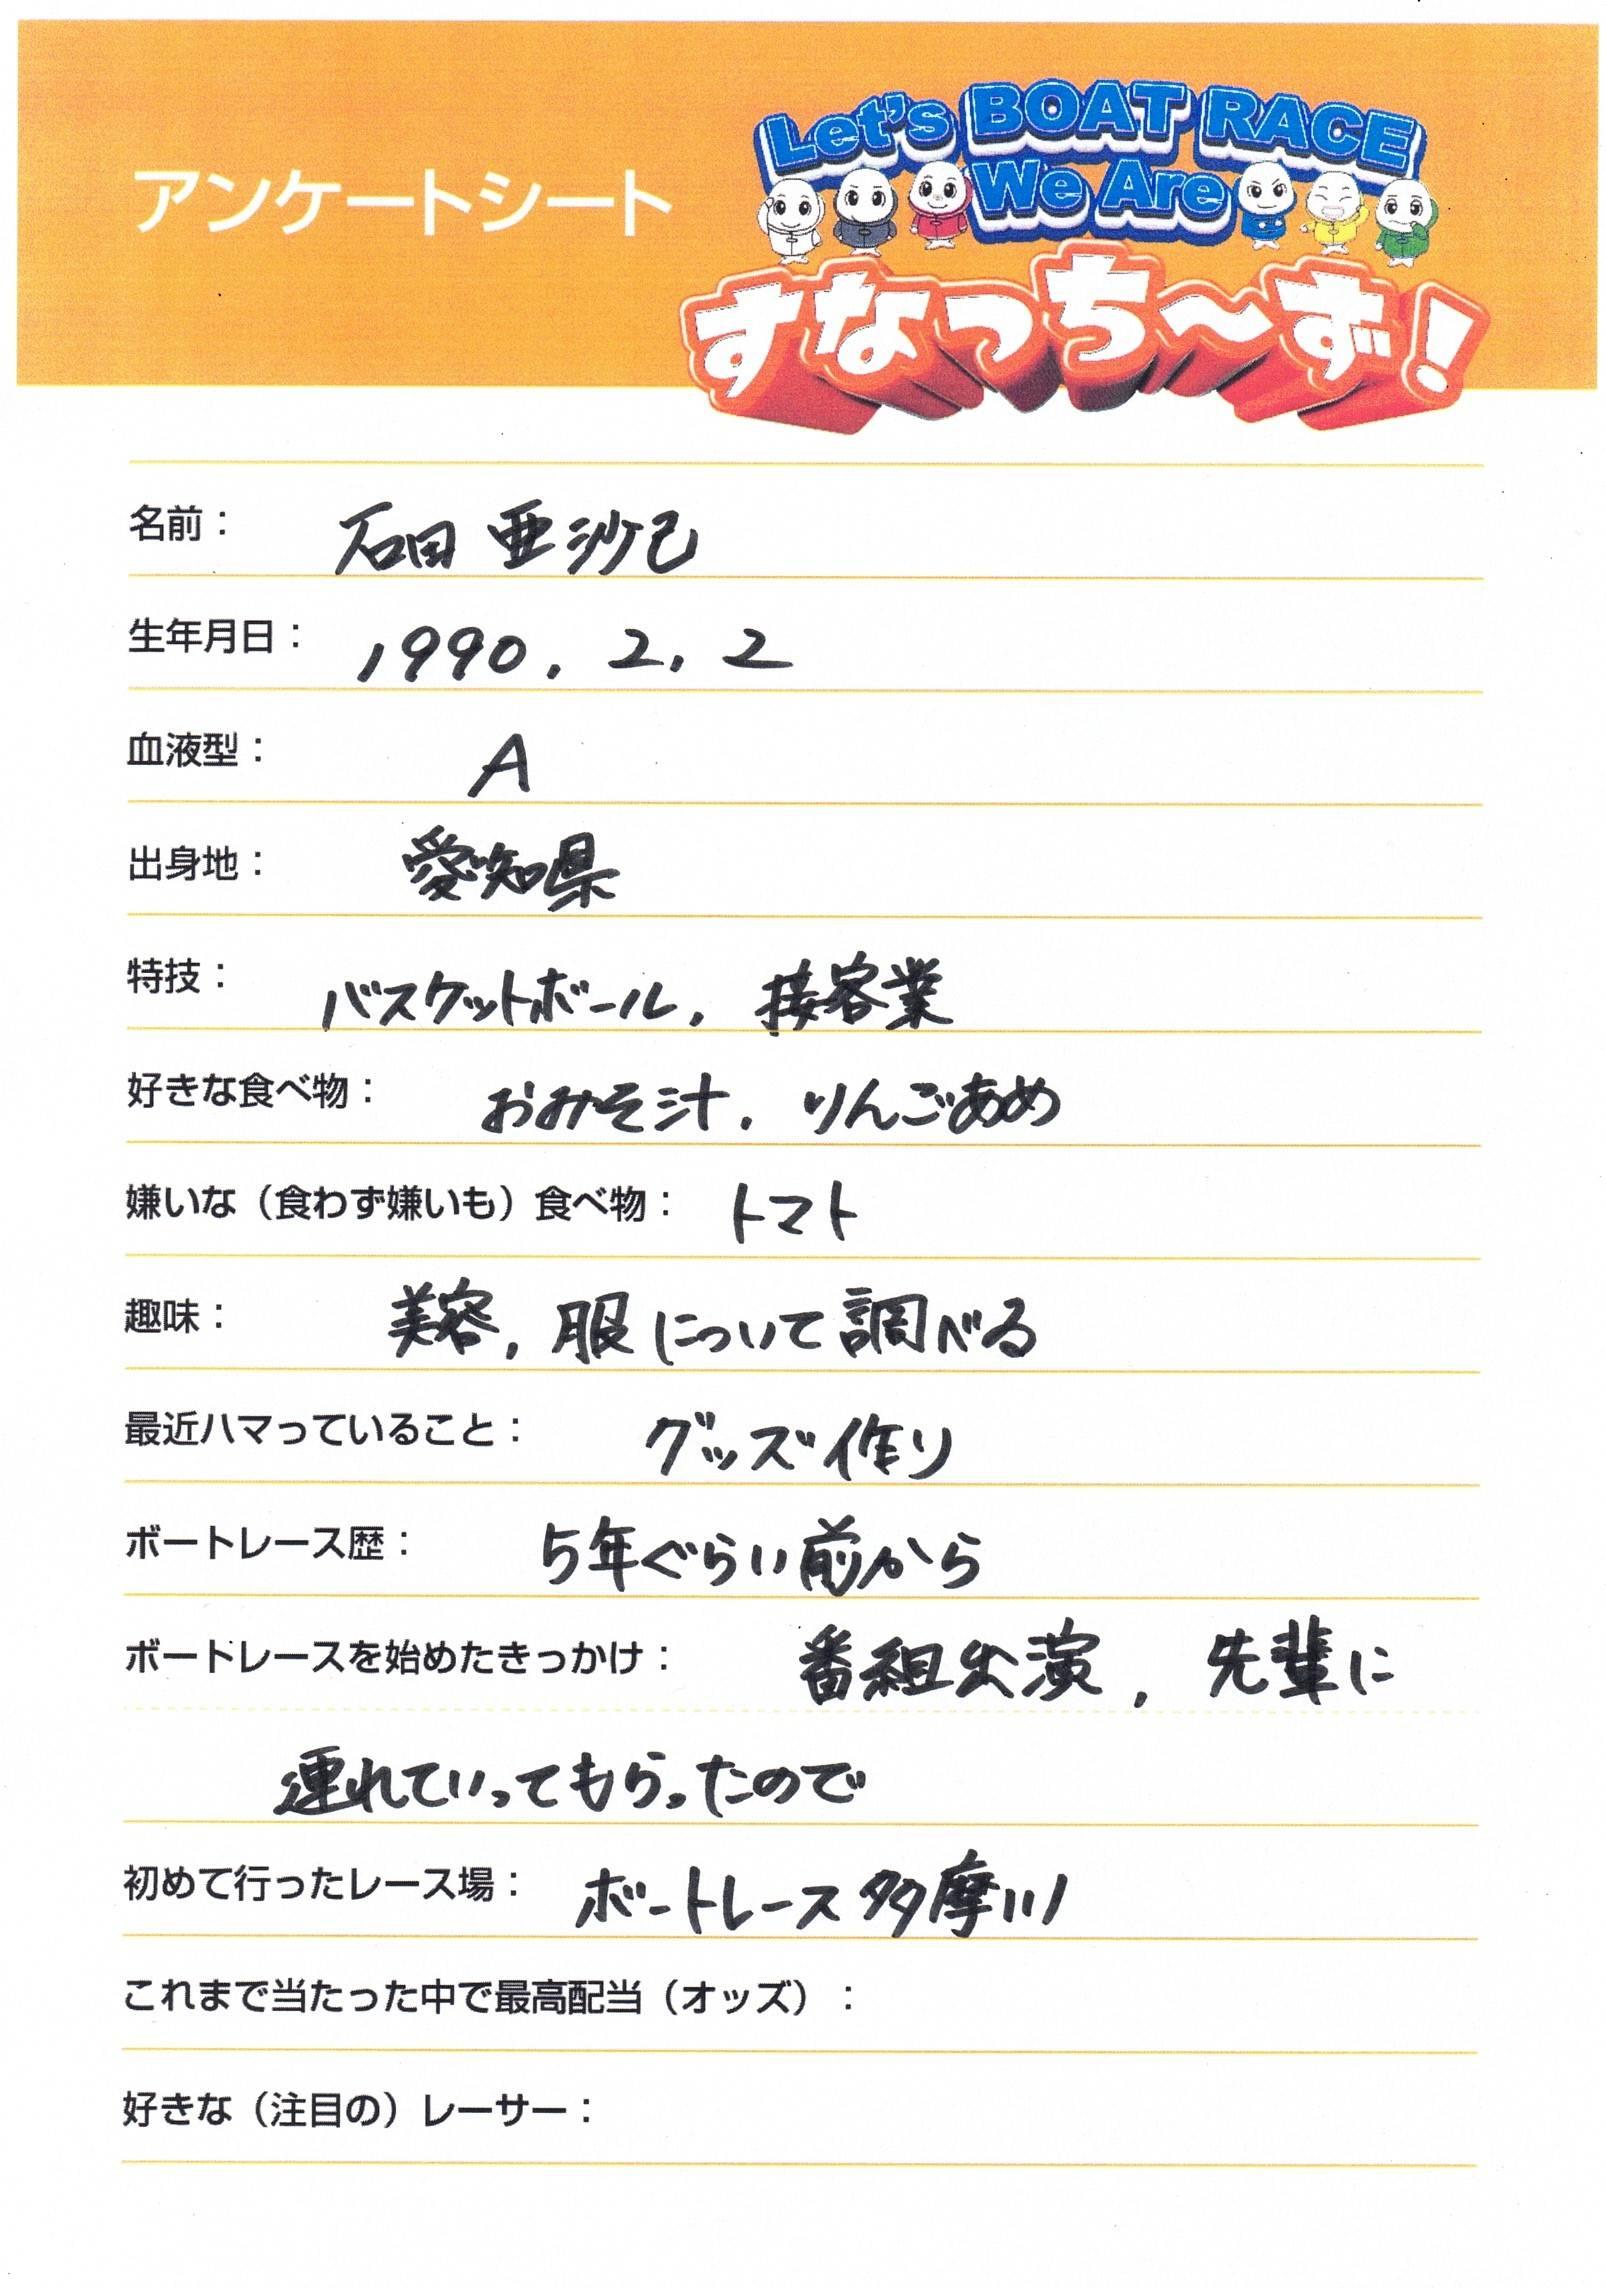 アンケートシート
Let's BOAT RACE
We Are
すなっち～ず！
名前： 石田 亜沙己
生年月日： 1990. 2. 2
血液型： A
出身地： 愛知県
特技： バスケットボール, 接客業
好きな食べ物： おみそ汁. りんごあめ
嫌いな（食わず嫌いも）食べ物： トマト
趣味： 美容, 服について調べる
最近ハマっていること： グッズ作り
ボートレース歴： 5年ぐらい前から
ボートレースを始めたきっかけ： 番組出演, 先輩に
連れていってもらったので
初めて行ったレース場： ボートレース多摩川
これまで当たった中で最高配当（オッズ）：
好きな（注目の）レーサー：